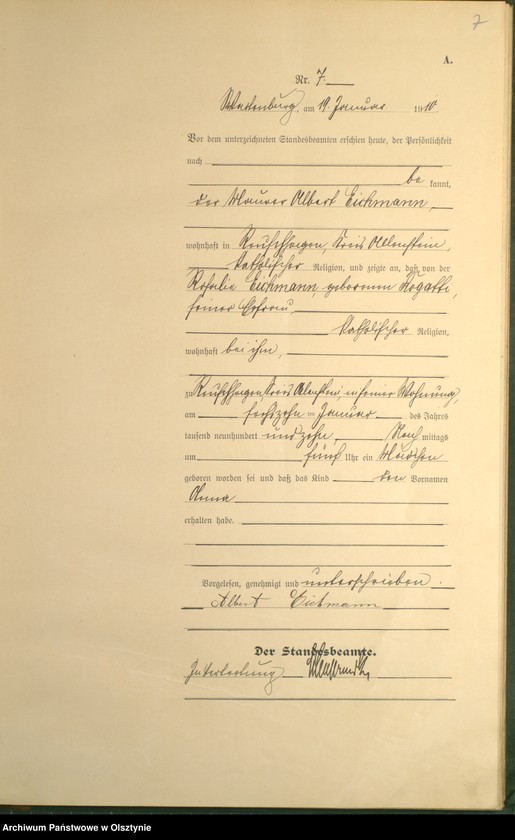 7
A.
Nr. 7.
Wartenburg, am 19. Januar 1910.
Vor dem unterzeichneten Standesbeamten erschien heute, der Persönlichkeit
nach
be kannt,
der Maurer Albert Eichmann,
wohnhaft in Kreis Allenstein,
katholischer Religion, und zeigte an, daß von der
Rosalie Eichmann, geborenen Rogalli,
seiner Ehefrau,
katholischer Religion,
wohnhaft bei ihm,
zu Kreis Allenstein, in seiner Wohnung,
am sechszehn ten Januar des Jahres
tausend neunhundert und zehn, Nach mittags
um fünf Uhr ein Mädchen
geboren worden sei und daß das Kind den Vornamen
Anna
erhalten habe.
Vorgelesen, genehmigt und unterschrieben.
Albert Eichmann
Der Standesbeamte.
In Vertretung
Archiwum Państwowe w Olsztynie